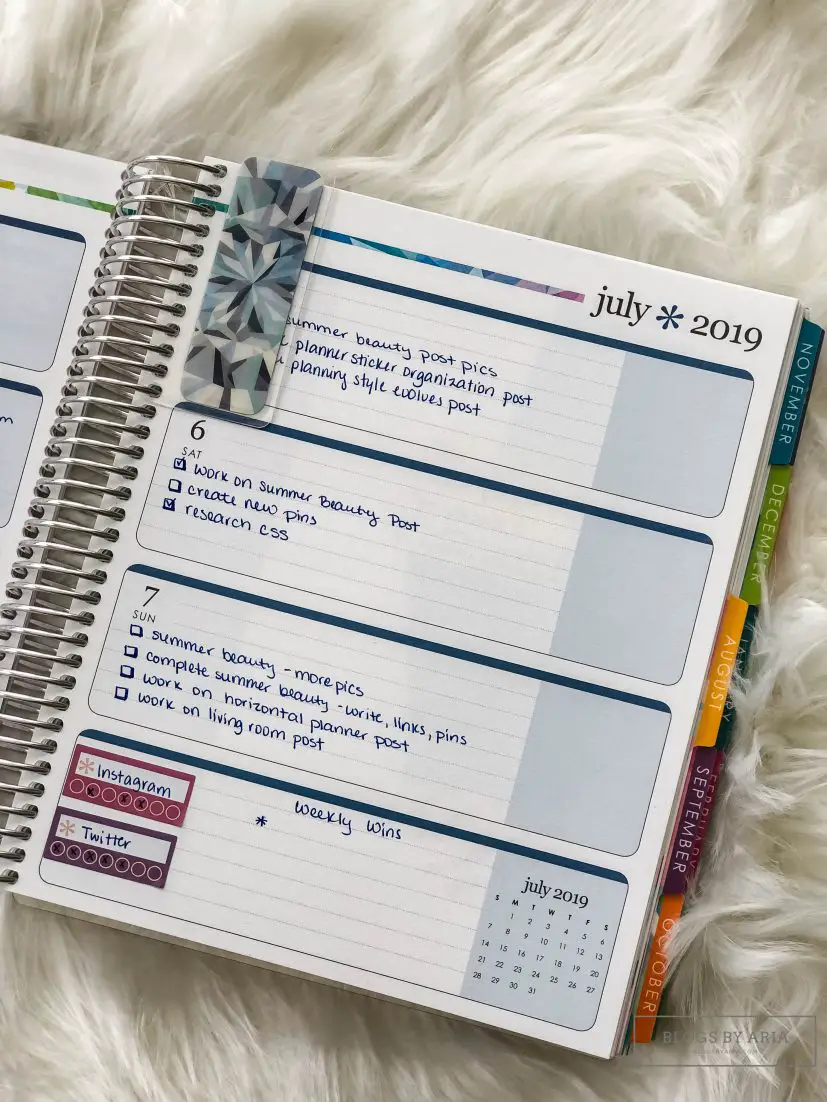 m
july * 2019
summer beauty post pics
planner sticker organization post
planning style evolves post
6
SAT
work on summer Beauty Post
create new pins
research css
7
SUN
summer beauty - more pics
complete summer beauty - write, links, pins
work on horizontal planner post
work on living room post
Instagram
Twitter
Weekly Wins
*
july 2019
S M T W T F S
1 2 3 4 5 6
7 8 9 10 11 12 13
14 15 16 17 18 19 20
21 22 23 24 25 26 27
28 29 30 31
NOVEMBER
DECEMBER
AUGUST
SEPTEMBER
FEBRUARY
OCTOBER
BLOGS BY ARIA